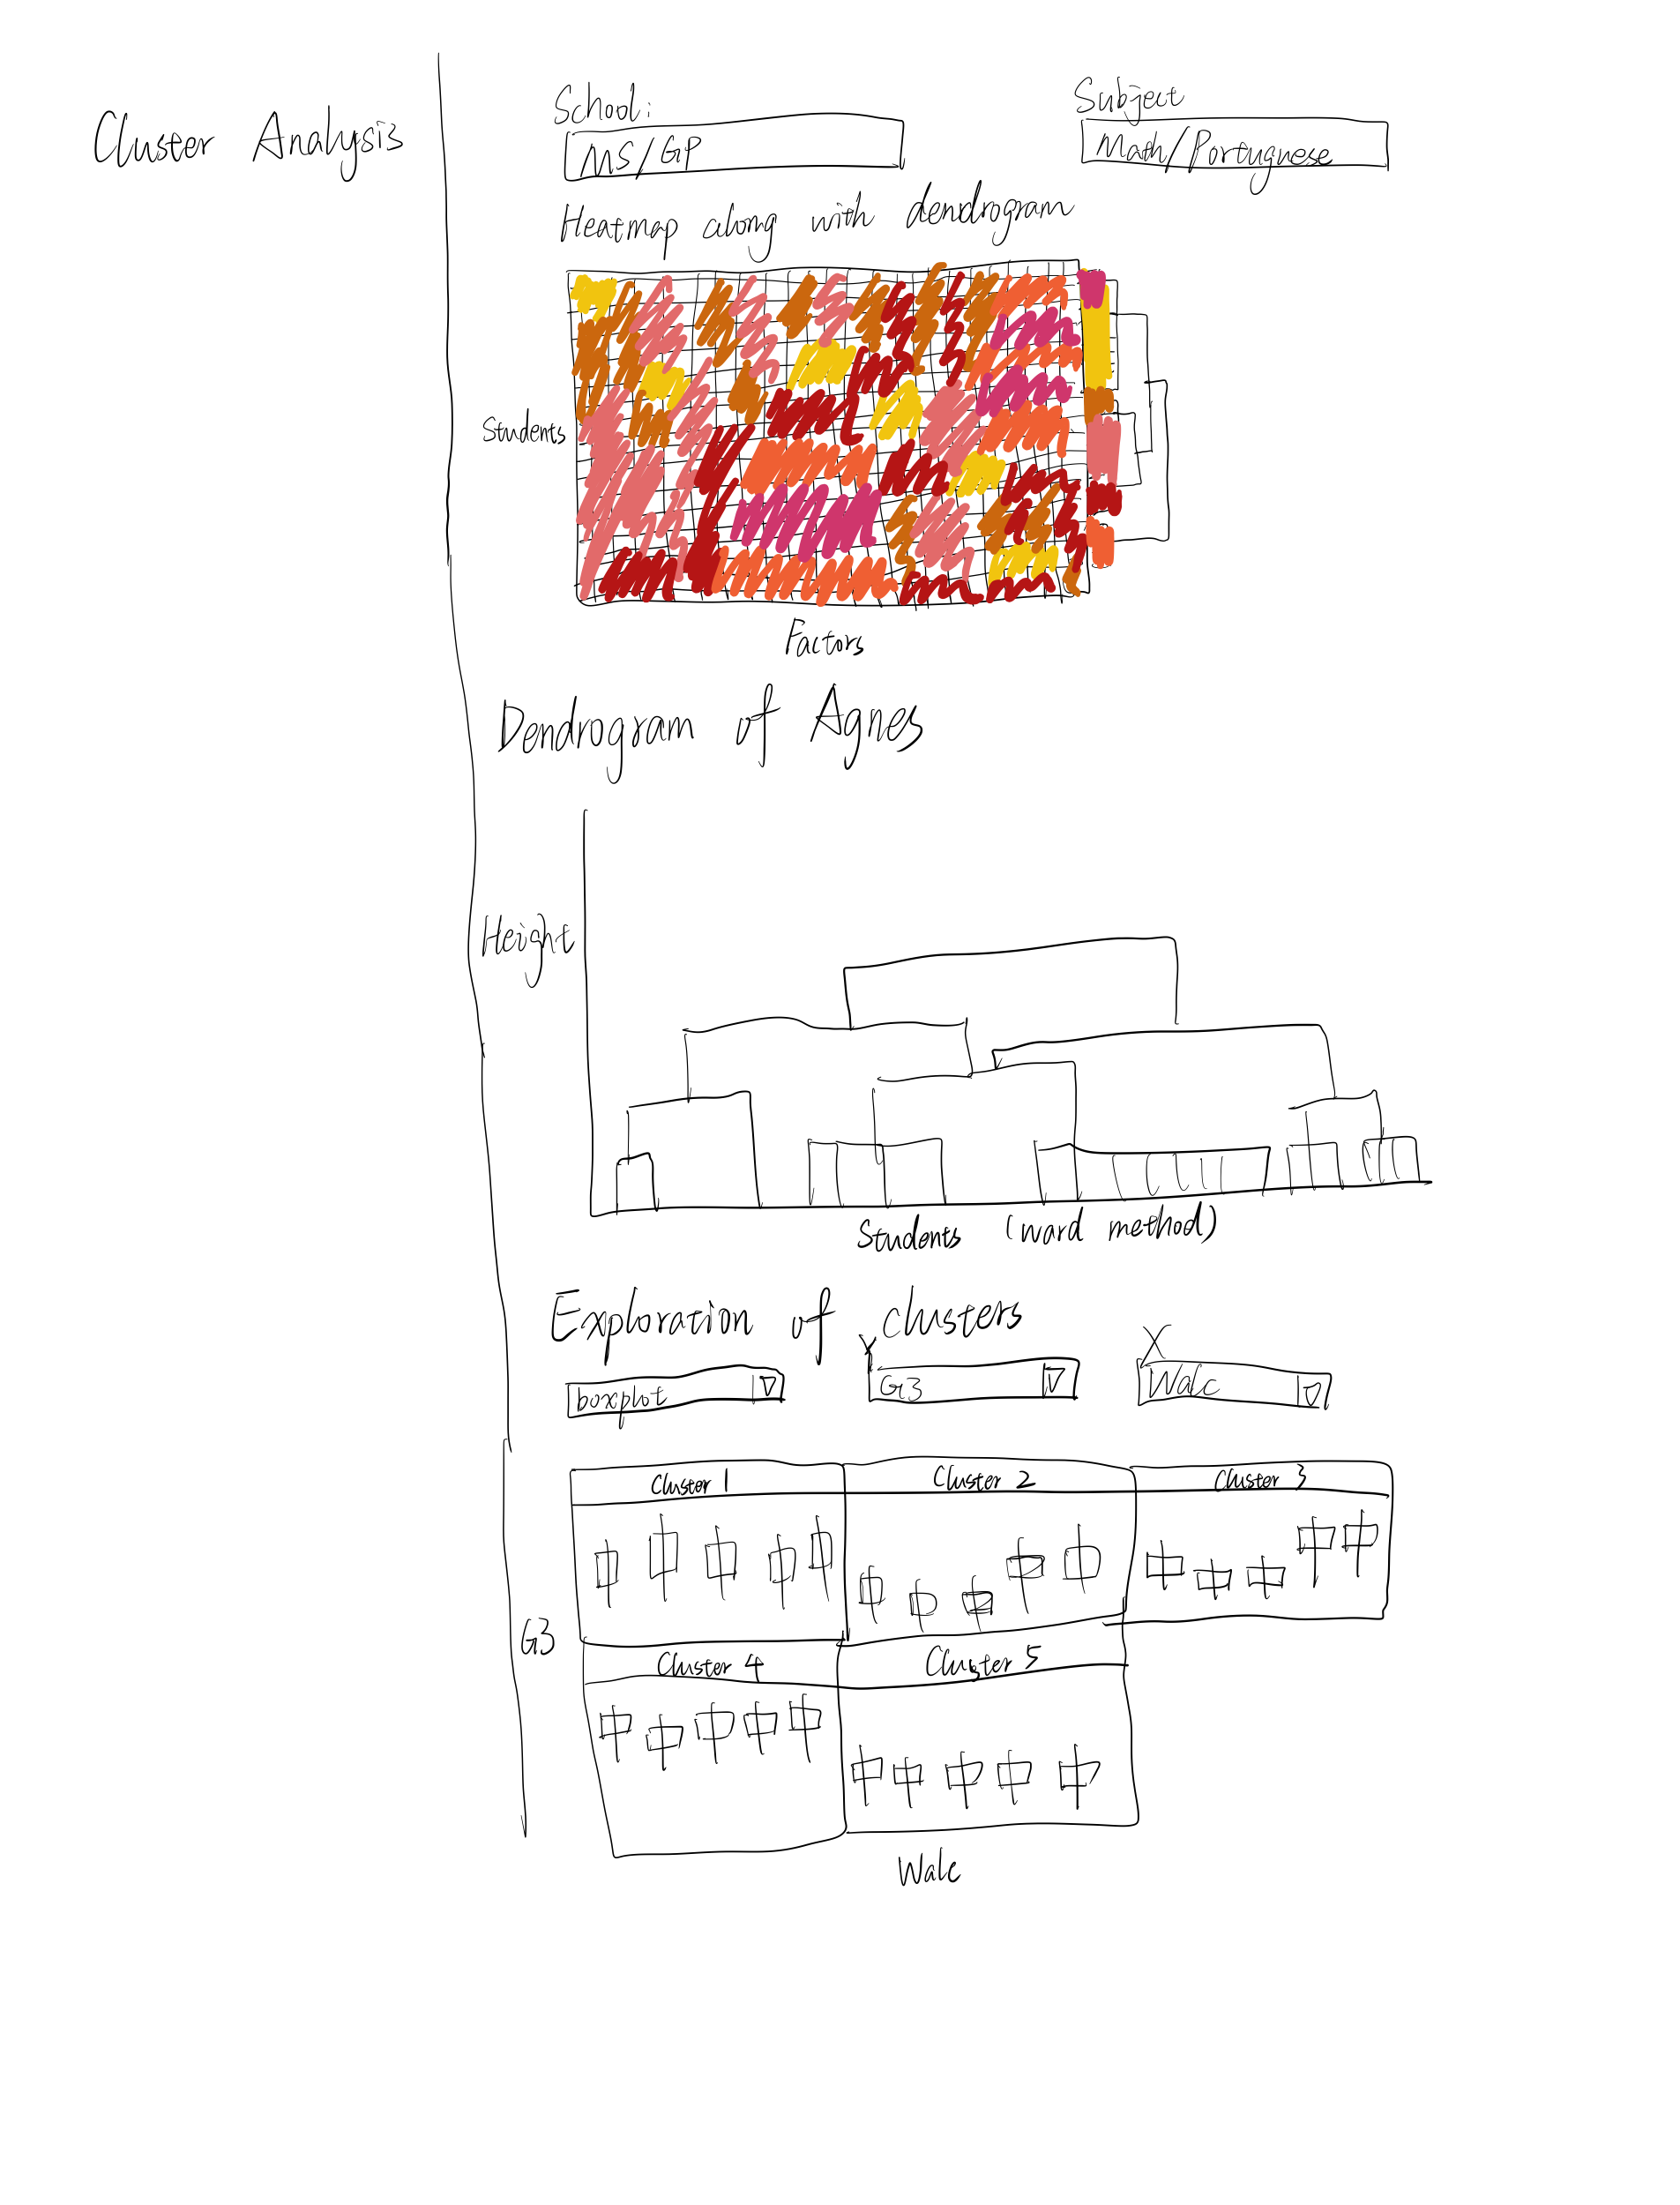 Cluster Analysis
School:
MS/GP
Subject
Math/Portuguese
Heatmap along with dendrogram
Students
Factors
Dendrogram of Agnes
Height
Students (ward method)
Exploration of clusters
boxplot
Y
G3
X
Walc
Cluster 1
Cluster 2
Cluster 3
G3
Cluster 4
Cluster 5
Walc